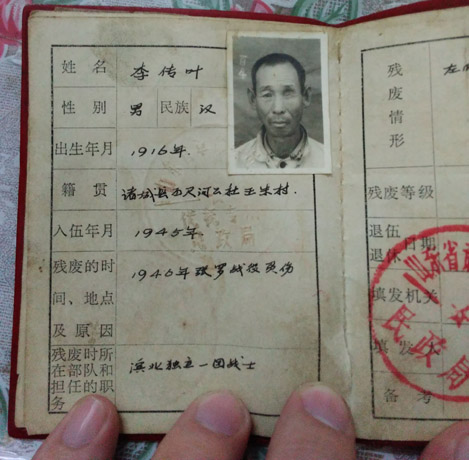 姓名 李传叶
性别 男 民族 汉
出生年月 1916年.
籍贯 诸城县 河公社王朱村.
入伍年月 1945年.
残废的时
间、地点
及原因 1946年 战役负伤
残废时所
在部队和
担任的职
务 滨北独立一团战士
残废情形
残废等级
退伍
退休日期
填发机关
填发
备考
山东省
民政局